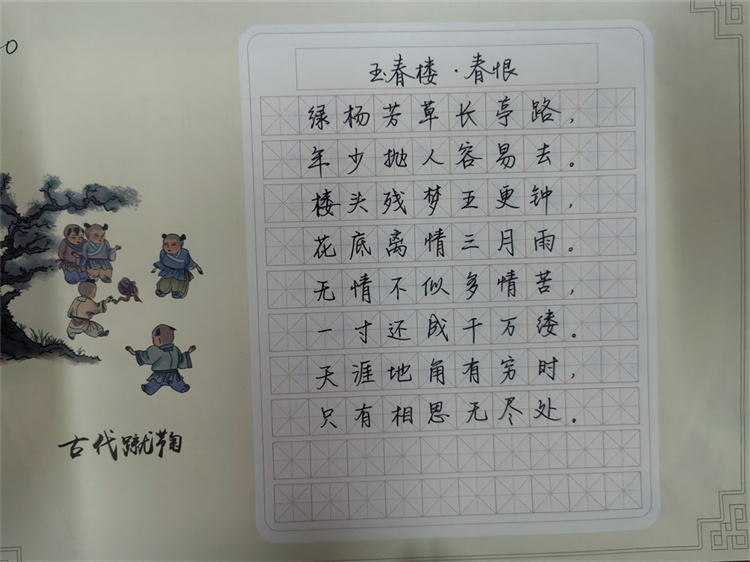 玉春楼·春恨
绿杨芳草长亭路,
年少抛人容易去。
楼头残梦五更钟,
花底离情三月雨。
无情不似多情苦,
一寸还成千万缕。
天涯地角有穷时,
只有相思无尽处。
古代蹴鞠